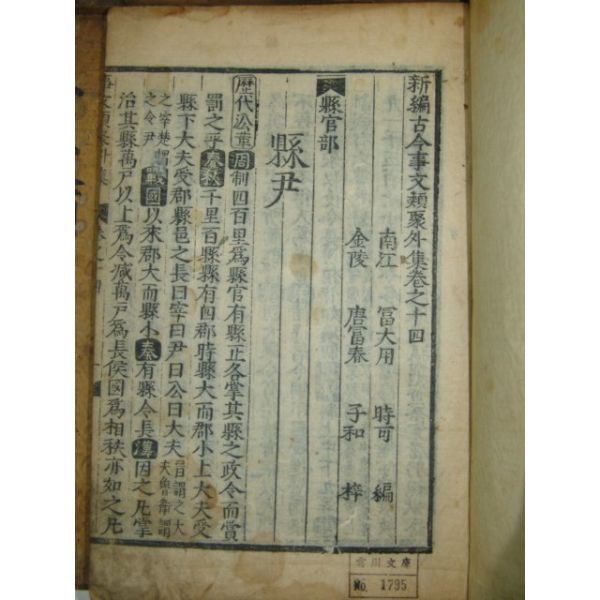 新編古今事文類聚外集卷之十四
南江 冨大用 時可 編
金陵 唐富春 子和 梓
縣官部
縣尹
歷代㳂革 周制四百里爲縣官有縣正各掌其縣之政令而賞
罰之乎春秋千里百縣縣有四郡時縣大而郡小上大夫受
縣下大夫受郡縣邑之長曰宰曰尹曰公曰大夫
之令尹戰國以來郡大而縣小秦有縣令長漢因之凢掌
治其縣萬戸以上爲令减萬戸爲長侯國爲相秩亦如之凢
雲川文庫
No. 1795